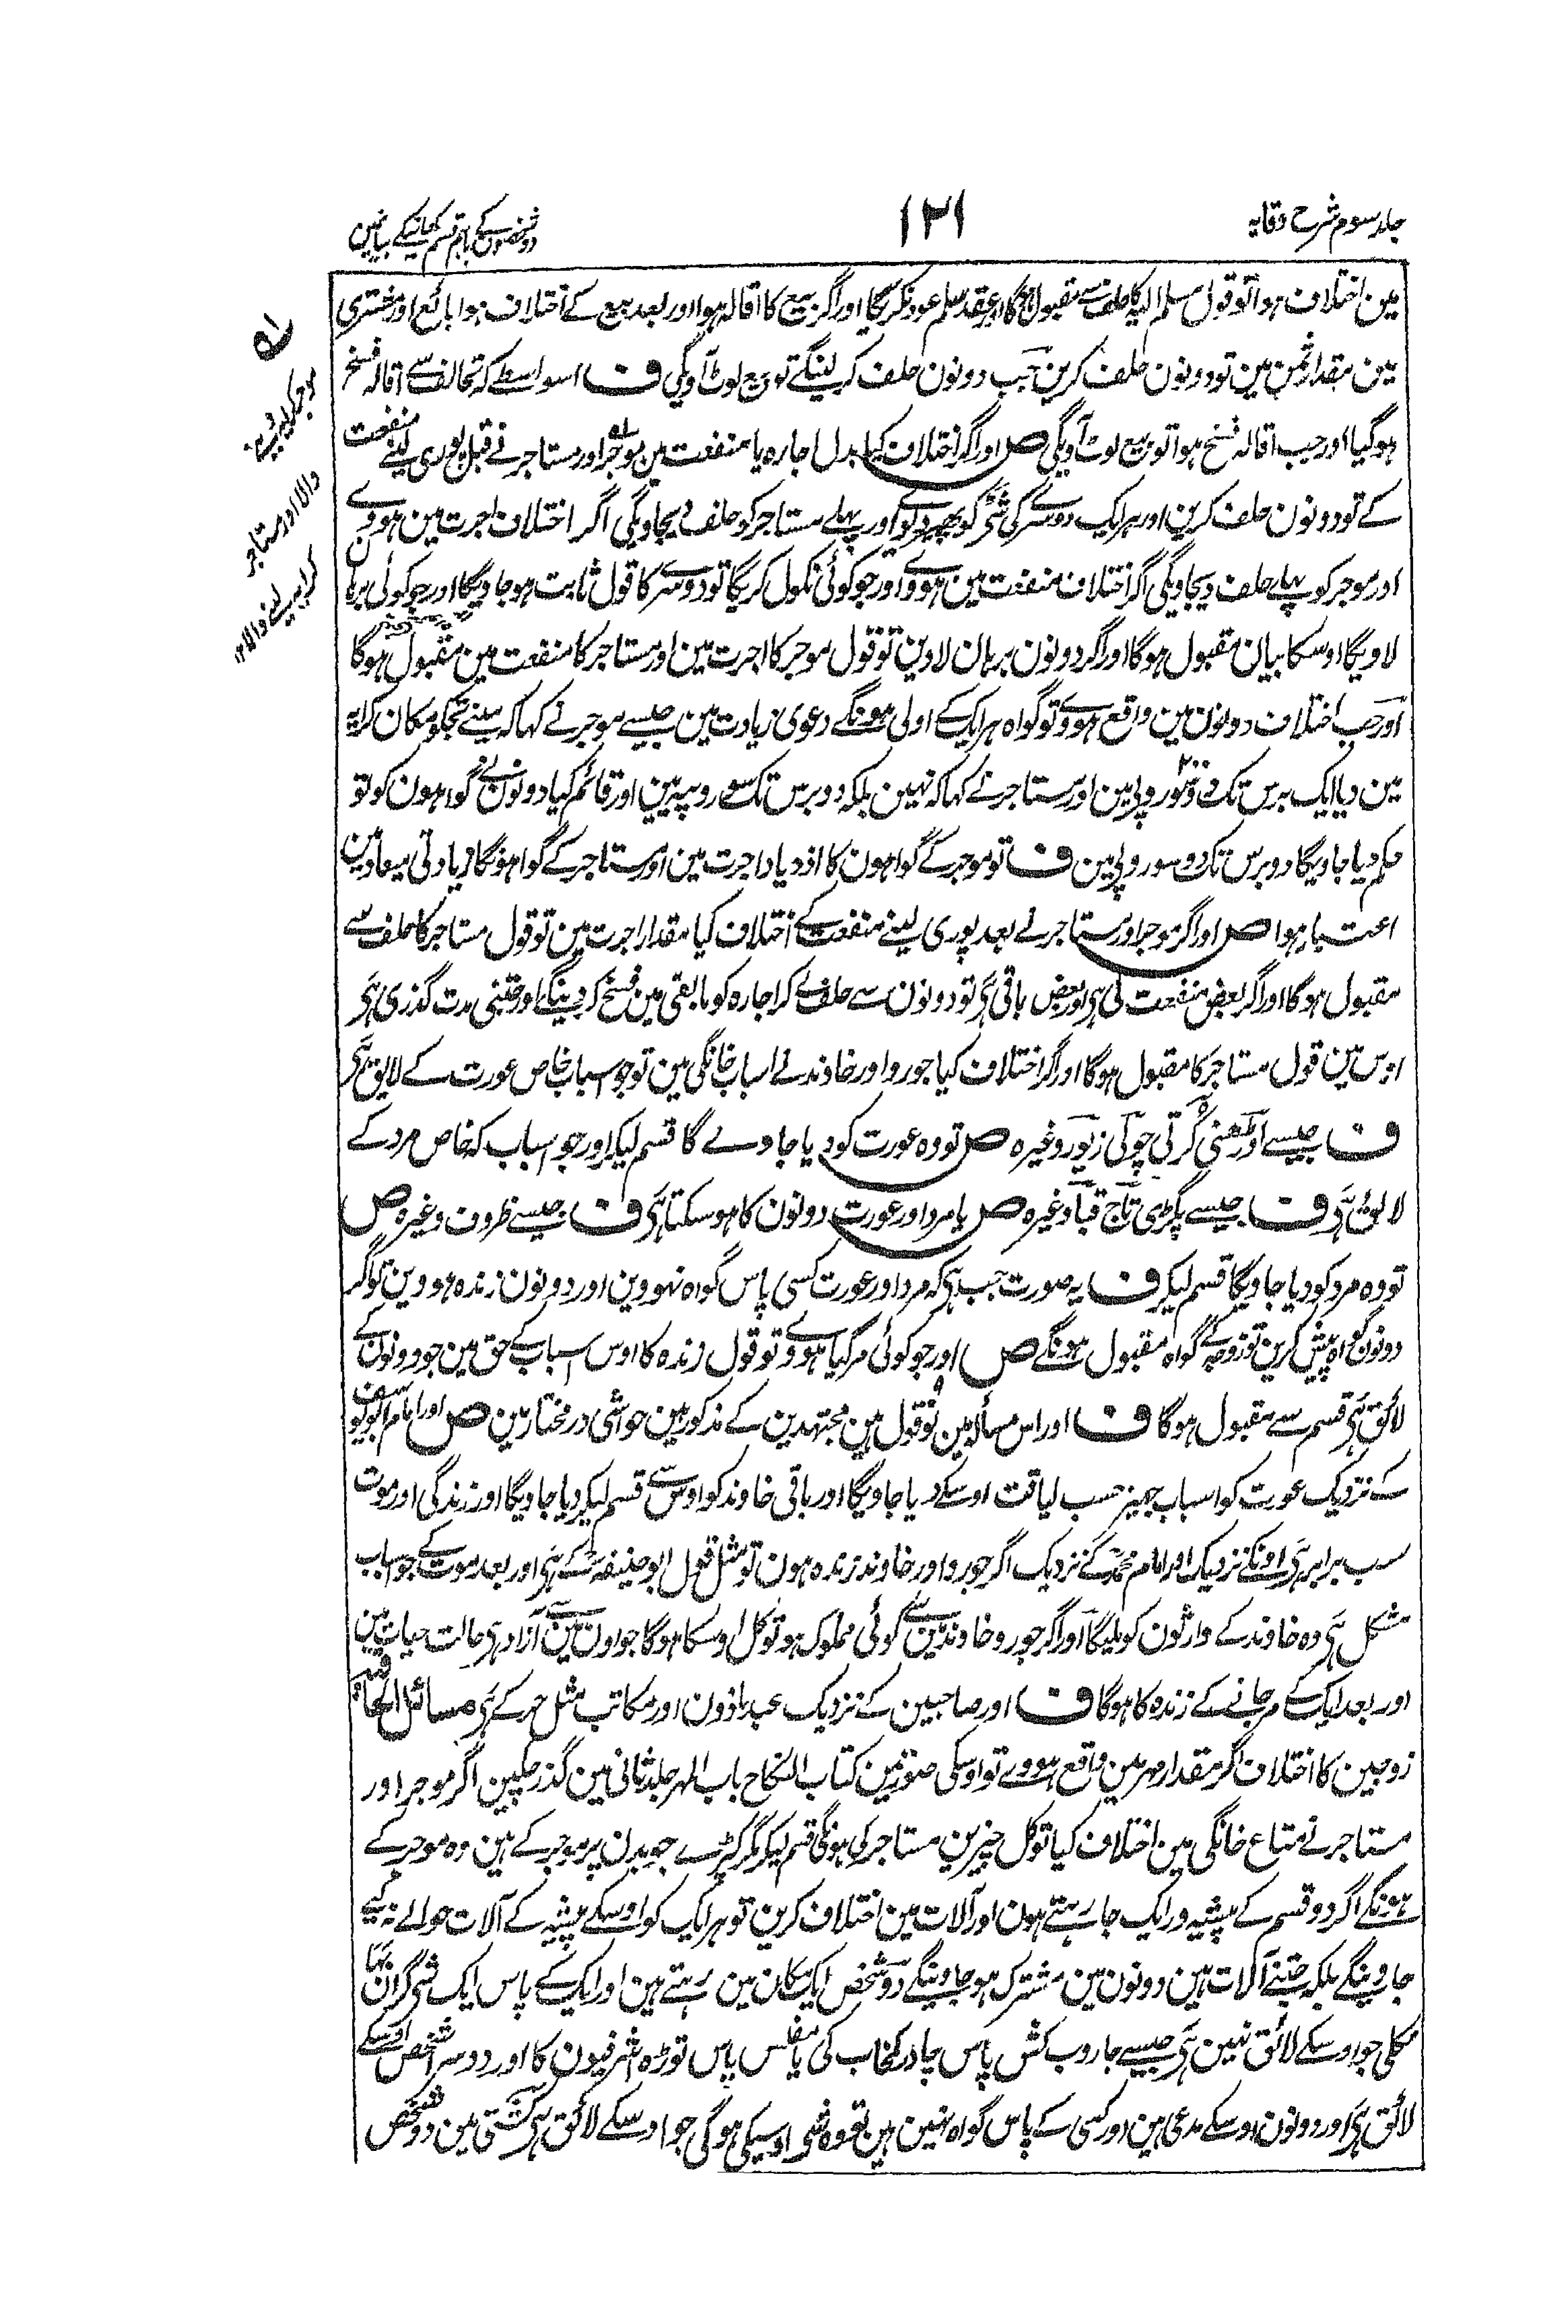 جلد سوم شرح وقایہ
۱۲۱
دو شخصون کے باہم قسم کھانیکے بیانمین
مین اختلاف ہوا تو قول مسلم الیہ کا حلف سے مقبول ہوگا اور عقد سلم عود نکریگا اور اگر بیع کا اقالہ ہوا اور بعد بیع کے اختلاف ہوا بائع اور مشتری
مین مقدار ثمن مین تو دونون حلف کرین جب دونون حلف کر لینگے تو بیع لوٹ آویگی ف اسواسطے کہ تحالف سے اقالہ فسخ
ہوگیا اور جب اقالہ فسخ ہوا تو بیع لوٹ آویگی ص اور اگر اختلاف کیا بدل اجارہ یا منفعت مین موجر اور مستاجر نے قبل پوری لینے منفعت
کے تو دونون حلف کرین اور ہر ایک دوسرے کی شئی کو پھیر دیوے اور پہلے مستاجر کو حلف دیجاویگی اگر اختلاف اجرت مین ہووے
اور موجر کو پہلے حلف دیجاویگی اگر اختلاف منفعت مین ہووے اور جو کوئی نکول کریگا تو دوسرے کا قول ثابت ہو جاویگا اور جو کوئی برہان
لاویگا اوسکا بیان مقبول ہوگا اور اگر دونون برہان لاوین تو قول موجر کا اجرت مین اور مستاجر کا منفعت مین مقبول ہوگا
اور جب اختلاف دونون مین واقع ہووے تو گواہ ہر ایک کے اولی ہونگے دعوی زیادت مین جیسے موجر نے کہا کہ مینے تجکو مکان کرایہ
مین دیا ایک برس تک دو سو روپی مین اور مستاجر نے کہا کہ نہین بلکہ دو برس تک سو روپیہ مین اور قائم کیا دونون نے گواہون کو تو
حکم دیا جاویگا دو برس تک دو سو روپی مین ف تو موجر کے گواہون کا ازدیاد اجرت مین اور مستاجر کے گواہونکا زیادتی میعاد مین
اعتبار ہوا ص اور اگر موجر اور مستاجر نے بعد پوری لینے منفعت کے اختلاف کیا مقدار اجرت مین تو قول مستاجر کا حلف سے
مقبول ہوگا اور اگر بعض منفعت لی ہی اور بعض باقی ہی تو دونون سے حلف لے کر اجارہ کو مابقی مین فسخ کر دینگے اور جتنی مدت گذری ہی
اوس مین قول مستاجر کا مقبول ہوگا اور اگر اختلاف کیا جورو اور خاوند نے اسباب خانگی مین تو جو اسباب خاص عورت کے لایق ہی
ف جیسے اوڑھنی کرتی چوکی زیور وغیرہ ص تو وہ عورت کو دیا جاوے گا قسم لیکر اور جو اسباب کہ خاص مرد کے
لائق ہی ف جیسے پگڑی تاج قبا وغیرہ ص یا مرد اور عورت دونون کا ہو سکتا ہی ف جیسے ظروف وغیرہ ص
تو وہ مرد کو دیا جاویگا قسم لیکر ف یہ صورت جب ہی کہ مرد اور عورت کسی پاس گواہ نہووین اور دونون زندہ ہووین تو اگر
دونون گواہ پیش کرین تو زوجہ کے گواہ مقبول ہونگے ص اور جو کوئی مر گیا ہووے تو قول زندہ کا اوس اسباب کے حق مین جو دونون کے
لائق ہی قسم سے مقبول ہوگا ف اور اس مسألہ مین نو قول ہین مجتہدین کے مذکور ہین حواشی در مختار مین ص اور امام ابو یوسف
کے نزدیک عورت کو اسباب جہیز حسب لیاقت اوسکے دیا جاویگا اور باقی خاوند کو اوس سے قسم لیکر دیا جاویگا اور زندگی اور موت
سب برابر ہی اونکے نزدیک اور امام محمد کے نزدیک اگر جورو اور خاوند زندہ ہون تو مثل قول ابو حنیفہ کے ہی اور بعد موت کے جو اسباب
مشکل ہی وہ خاوند کے وارثون کو ملیگا اور اگر جورو خاوند مین سے کوئی مملوک ہو تو کل اوسکا ہوگا جو اون مین سے آزاد ہی حالت حیات مین
اور بعد ایک کے مرجانے کے زندہ کا ہوگا ف اور صاحبین کے نزدیک عبد ماذون اور مکاتب مثل حر کے ہی مسائل الحاقیہ
زوجین کا اختلاف اگر مقدار مہر مین واقع ہووے تو اوسکی صورتین کتاب النکاح باب المہر جلد ثانی مین گذر چکین اگر موجر اور
مستاجر نے متاع خانگی مین اختلاف کیا تو کل چیزین مستاجر کی ہونگی قسم لیکر مگر کپڑے جو بدن پر موجر کے ہین وہ موجر کے
ہونگے اگر دو قسم کے پیشہ ور ایک جا رہتے ہون اور آلات مین اختلاف کرین تو ہر ایک کو اوسکے پیشہ کے آلات حوالے نہ کیے
جاوینگے بلکہ جتنے آلات ہین دونون مین مشترک ہو جاوینگے دو شخص ایک مکان مین رہتے ہین اور ایک کے پاس ایک شئی گران بہا
نکلی جو اوسکے لائق نہین ہی جیسے جاروب کش پاس چادر کمخاب کی یا مفلس پاس توڑہ اشرفیون کا اور دوسرا شخص اوسکے
لائق ہی اور دونون اوسکے مدعی ہین اور کسی کے پاس گواہ نہین ہین تو وہ شئی اوسیکی ہوگی جو اوسکے لائق ہی کشتی مین دو شخص
موجر کرایہ دینے
والا اور مستاجر
کرایہ لینے والا ۱۲